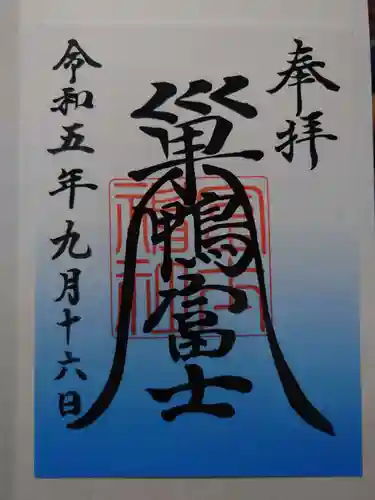 奉拝
巣鴨富士
令和五年九月十六日